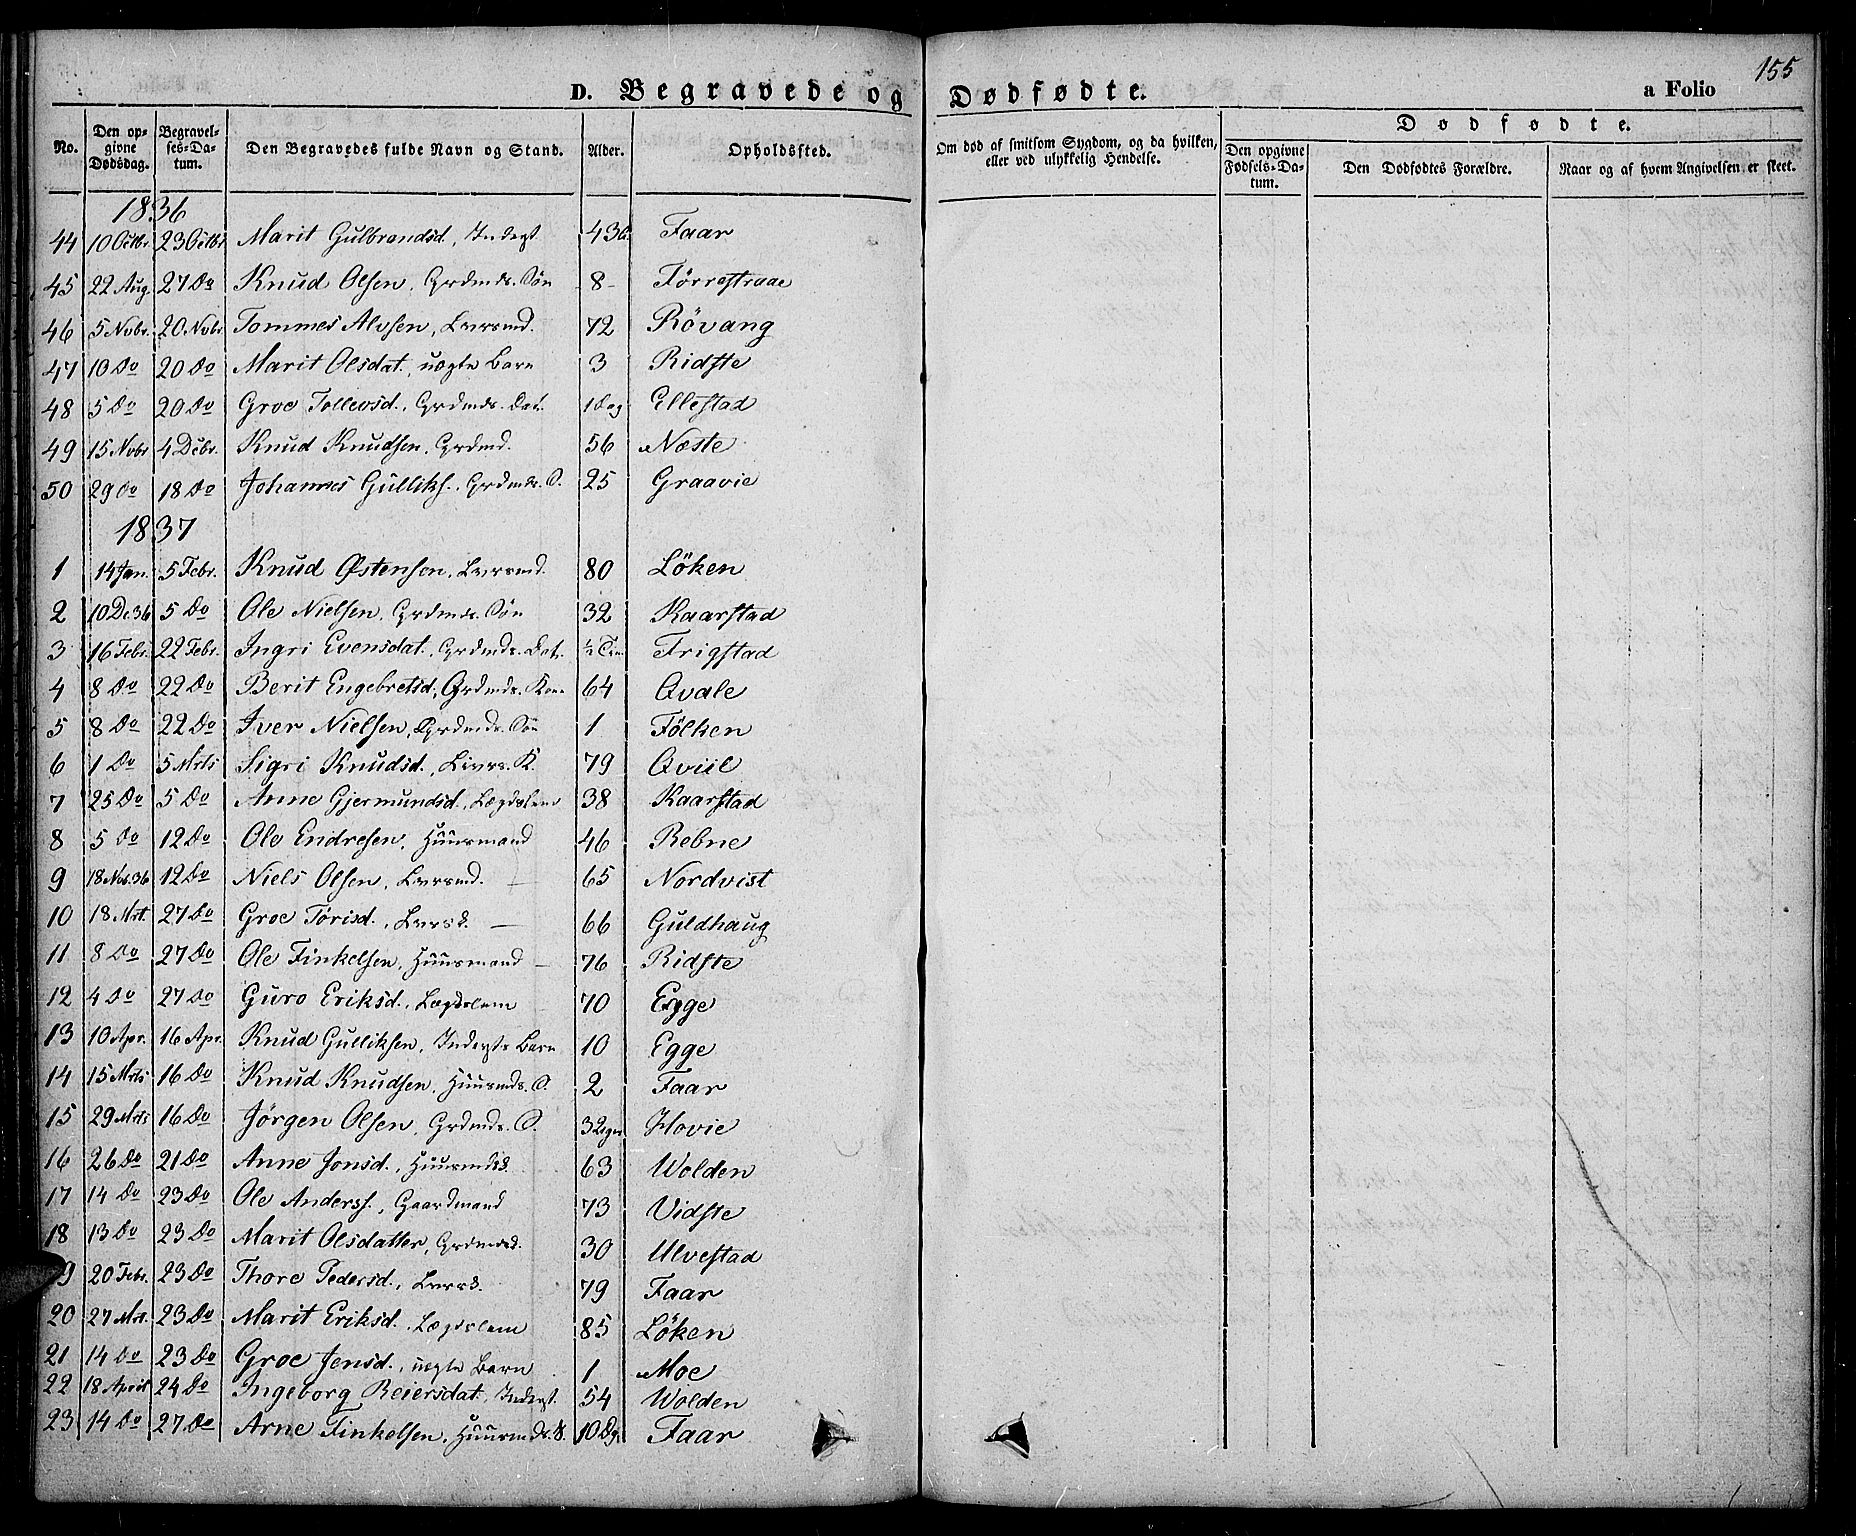 155
D. Begravede og Dødfødte. a Folio
No. Den opgivne Dødsdag. Begravelses-Datum. Den Begravedes fulde Navn og Stand. Alder. Opholdssted. Om død af smitsom Sygdom, og da hvilken, eller ved ulykkelig Hendelse. Dødfødte. Den opgivne Fødsels-Datum. Den Dødfødtes Forældre. Naar og af hvem Angivelsen er skeet.
1836
44 10 Octbr 23 Octbr Marit Gulbrandsd., Inderst 43 Faar
45 22 Aug. 27 Do Knud Olsen, Grdmds. Søn 8 - Førrestraae
46 5 Nvbr. 20 Nvbr. Tommes Alvsen, Levsmd. 72 Røvang
47 10 Do 20 Do Marit Olsdat., uægte Barn 3 Ridste
48 5 Do 20 Do Groe Tollevsd., Grdmds. Dat. 1 Dag Ellestad
49 15 Nvbr 4 Dcbr. Knud Knudsen, Grdmd. 56 Næste
50 29 Do 18 Do Johannes Gulliks., Grdmds. S. 25 Graavie
1837
1 14 Jan. 5 Febr. Knud Østensen, Levsmd. 80 Løken
2 10 Dc. 36 5 Do Ole Nielsen, Grdmds. Søn 32 Kaarstad
3 16 Febr. 22 Febr. Ingri Evensdat., Grdmds. Dat. ½ Tim Frigstad
4 8 Do 22 Do Berit Engebretsd., Grdmds. Kone 64 Qvale
5 8 Do 22 Do Iver Nielsen, Grdmds. Søn 1 Følken
6 1 Do 5 Mrts Sigri Knudsd., Levs. K. 79 Qviil
7 25 Do 5 Do Anne Gjermundsd., Lægdslem 38 Kaarstad
8 5 Do 12 Do Ole Endresen, Huusmand 46 Rebne
9 18 Nov. 36 12 Do Niels Olsen, Levsmd. — 65 Nordvist
10 18 Mrt. 27 Do Groe Tørisd., Levsk. — 66 Guldhaug
11 8 Do 27 Do Ole Finkelsen, Huusmand — 76 Ridste
12 4 Do 27 Do Guro Eriksd., Lægdslem 70 Egge
13 10 Apr. 16 Apr. Knud Gulliksen, Inderst Barn 10 Egge
14 15 Mrts 16 Do Knud Knudsen, Huusmds. S. 2 Faar
15 29 Mrts 16 Do Jørgen Olsen, Grdmds. S. 3 Hovie
16 26 Do 21 Do Anne Jonsd., Huusmdsk 63 Wolden
17 14 Do 23 Do Ole Anderss., Gaardmand 73 Vidste
18 13 Do 23 Do Marit Olsdatter, Grdmdsd. 30 Ulvestad
9 20 Febr. 23 Do Thore Pedersd., Levsk. 79 Faar
20 27 Mrt. 23 Do Marit Eriksd., Lægdslem 85 Løken
21 14 Do 23 Do Groe Jensd., uægte Barn 1 Moe
22 18 April 24 Do Ingeborg Reiersdat., Inderst. 54 Wolden
23 14 Do 27 Do Arne Finkelsen, Huusmds. S. 10 Dg. Faar